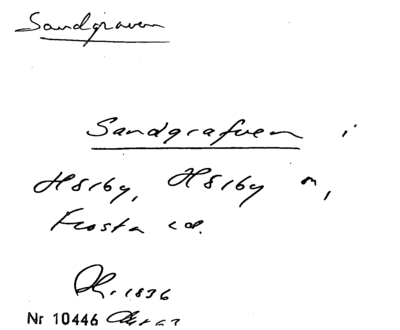 Sandgraven
Sandgrafven i
Hörby, Hörby sn,
Frosta hd.
1836
Nr 10446